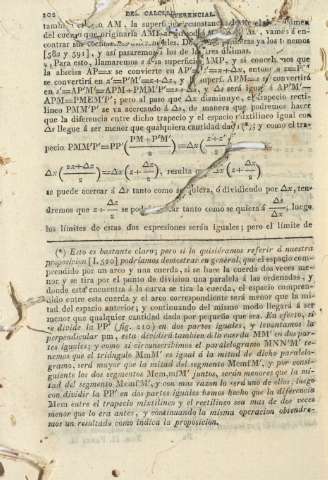 202 DEL CALCULO DIFERENCIAL.
AM, la superficie
del cuerpo que originaria vamos á en-
contrar sus
[582 y 591], y así pasaremos
Para esto, llamaremos s la superficie AMP, y si
la abscisa AP=x se convierte en AP'=x+Δx, entonces z=MP
se convertirá en z'=M'P' superficie APM=s se convertirá
en s'=AP'M'=APM+PMM'P' y Δs será igual á AP'M'—
APM=PMEM'P'; pero al paso que Δx disminuye, el trapecio recti-
líneo PMM'P' se va acercando á Δs, de manera que podremos hacer
que la diferencia entre dicho trapecio y el espacio mixtilíneo igual con
Δs llegue á ser menor que cualquiera cantidad dada (*); y como el tra-
pecio PMM'P'=PP'(PM+P'M'/2)=Δx(z+z'/2)=
Δx(2z+Δz/2)=Δx(z+Δz/2), resulta que Δx(z+Δz/2)
se puede acercar á Δs tanto como se quiera, ó dividiendo por Δx, ten-
dremos que z+Δz/2 se podrá acercar tanto como se quiera á Δs/Δx; luego
los límites de estas dos expresiones serán iguales; pero el límite de
(*) Esto es bastante claro; pero si lo quisiéramos referir á nuestra
proposicion [I. 590] podríamos demostrar en general, que el espacio com-
prendido por un arco y una cuerda, si se hace la cuerda dos veces me-
nor y se tira por el punto de division una paralela á las ordenadas, y
donde esta encuentra á la curva se tira la cuerda, el espacio compren-
dido entre esta cuerda y el arco correspondiente será menor que la mi-
tad del espacio anterior; y continuando del mismo modo llegará á ser
menor que cualquier cantidad dada por pequeña que sea. En efecto, si
se divide la PP' (fig. 210) en dos partes iguales, y levantamos la
perpendicular pm, esta dividirá tambien á la cuerda MM' en dos par-
tes iguales; y como si circunscribimos el paralelogramo MNN'M' te-
nemos que el triángulo MmM' es igual á la mitad de dicho paralelo-
gramo, será mayor que la mitad del segmento MemfM', y por consi-
guiente los dos segmentos Mem, mfM' juntos, serán menores que la mi-
tad del segmento MemfM', y con mas razon lo será uno de ellos; luego
con dividir la PP' en dos partes iguales hemos hecho que la diferencia
Mem entre el trapecio mixtilíneo y el rectilíneo sea mas de dos veces
menor que lo era antes, y continuando la misma operacion obtendre-
mos un resultado como indica la proposicion.